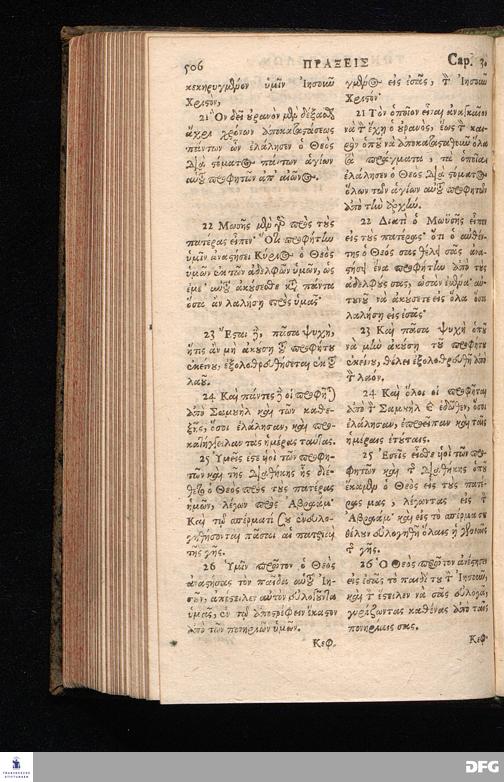 506 ΠΡΑΞΕΙΣ Cap. 3.
κεκηρυγμένον ὑμῖν Ἰησοῦν
Χριστὸν,
21 Ὃν δεῖ οὐρανὸν μὲν δέξασθαι
ἄχρι χρόνων ἀποκαταστάσεως
πάντων ὧν ἐλάλησεν ὁ Θεὸς
διὰ στόματος πάντων ἁγίων
αὐτοῦ προφητῶν ἀπ' αἰῶνος.
22 Μωσῆς μὲν γὰρ πρὸς τοὺς
πατέρας εἶπεν· Ὅτι προφήτην
ὑμῖν ἀναστήσει Κύριος ὁ Θεὸς
ὑμῶν ἐκ τῶν ἀδελφῶν ὑμῶν, ὡς
ἐμέ· αὐτοῦ ἀκούσεσθε κατὰ πάντα
ὅσα ἂν λαλήσῃ πρὸς ὑμᾶς·
23 Ἔσται δὲ, πᾶσα ψυχὴ,
ἥτις ἂν μὴ ἀκούσῃ τοῦ προφήτου
ἐκείνου, ἐξολοθρευθήσεται ἐκ τοῦ
λαοῦ.
24 Καὶ πάντες δὲ οἱ προφῆται
ἀπὸ Σαμουὴλ καὶ τῶν καθε-
ξῆς, ὅσοι ἐλάλησαν, καὶ προ-
κατήγγειλαν τὰς ἡμέρας ταύτας.
25 Ὑμεῖς ἐστε υἱοὶ τῶν προφη-
τῶν καὶ τῆς διαθήκης ἧς διέ-
θετο ὁ Θεὸς πρὸς τοὺς πατέρας
ἡμῶν, λέγων πρὸς Ἀβραάμ·
Καὶ τῷ σπέρματί σου ἐνευλο-
γηθήσονται πᾶσαι αἱ πατριαὶ
τῆς γῆς.
26 Ὑμῖν πρῶτον ὁ Θεὸς
ἀναστήσας τὸν παῖδα αὐτοῦ Ἰη-
σοῦν, ἀπέστειλεν αὐτὸν εὐλογοῦντα
ὑμᾶς, ἐν τῷ ἀποστρέφειν ἕκαστον
ἀπὸ τῶν πονηριῶν ὑμῶν.
Κεφ.
γμένος εἰς ἐσᾶς, τὸν Ἰησοῦν
Χριστόν·
21 Τὸν ὁποῖον εἶναι ἀναγκαῖον
νὰ τὸν ἔχῃ ὁ οὐρανὸς, ἕως τὸν και-
ρὸν ὁποῦ νὰ ἀποκατασταθοῦν ὅλα
τὰ πράγματα, τὰ ὁποῖα
ἐλάλησεν ὁ Θεὸς διὰ στόματος
ὅλων τῶν ἁγίων αὐτοῦ προφητῶν
ἀπὸ τὴν ἀρχήν.
22 Διατὶ ὁ Μωϋσῆς εἶπεν
εἰς τοὺς πατέρας· ὅτι ὁ αὐθέν-
της ὁ Θεός σας θέλει σᾶς ἀνα-
στήσῃ ἕνα προφήτην ἀπὸ τοὺς
ἀδελφούς σας, ὡσὰν ἐμένα· αὐ-
τουνοῦ νὰ ἀκούσετε εἰς ὅλα ὅσα
λαλήσῃ εἰς ἐσᾶς·
23 Καὶ πᾶσα ψυχὴ ὁποῦ
νὰ μὴν ἀκούσῃ τοῦ προφήτου
ἐκείνου, θέλει ἐξολοθρευθῆ ἀπὸ
τὸν λαόν.
24 Καὶ ὅλοι οἱ προφῆται
ἀπὸ τὸν Σαμουὴλ καὶ ἐδῶθεν, ὅσοι
ἐλάλησαν, ἐπροεῖπαν καὶ ταῖς
ἡμέραις ἐτούταις.
25 Ἐσεῖς εἶσθε υἱοὶ τῶν προ-
φητῶν καὶ τῆς διαθήκης ὁποῦ
ἔκαμεν ὁ Θεὸς εἰς τοὺς πατέ-
ρας μας, λέγωντας εἰς τὸν
Ἀβραάμ· καὶ εἰς τὸ σπέρμα σου
θέλουν εὐλογηθῆ ὅλαις ᾑ γενεαῖς
τῆς γῆς.
26 Ὁ Θεὸς πρῶτον ἀνέστησεν
εἰς ἐσᾶς τὸ παιδί του τὸν Ἰησοῦν,
καὶ τὸν ἔστειλεν νὰ σᾶς εὐλογᾷ,
γυρίζωντας καθένας ἀπὸ ταῖς
πονηρίαις σας.
Κεφ.
FRANCKESCHE STIFTUNGEN
DFG